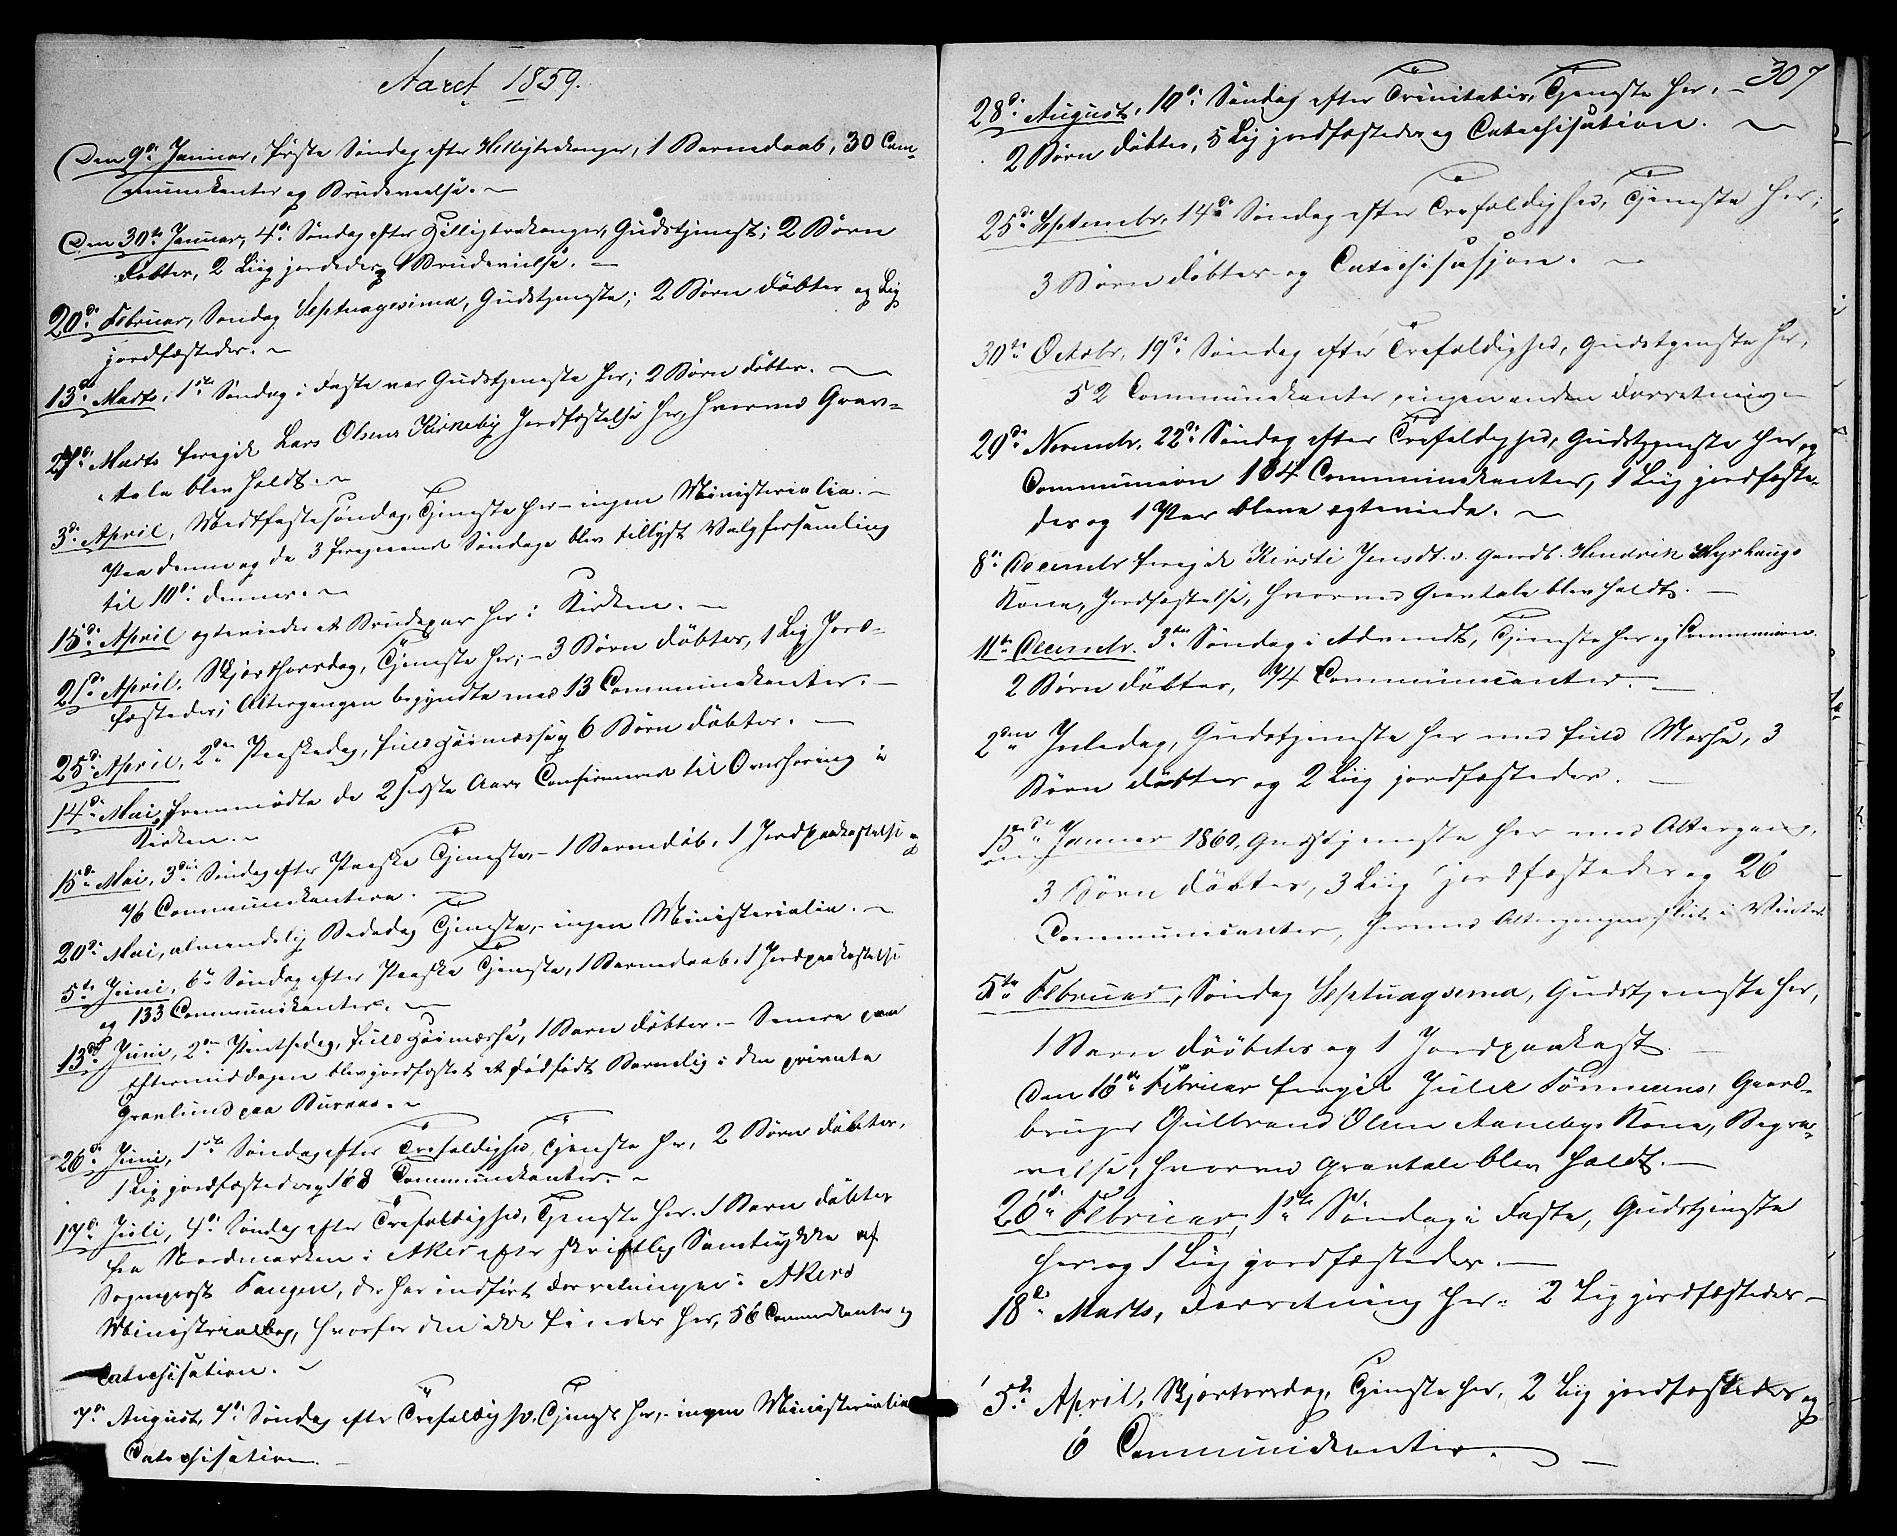 Aaret 1859.
Den 9de Januar, første Søndag efter Helligtrekonger, 1 Barnedaab, 30 Com-
munikanter og Brudevielse. –
Den 30te Januar, 4de Søndag efter Helligtrekonger, Gudstjenest; 2 Børn
døbtes, 2 Liig jordedes og 1 Brudevielse. –
20de Februar, Søndag Septuagesima, Gudstjeneste; 2 Børn døbtes og Lig
jordfæstedes. –
13de Marts, 1ste Søndag i Faste var Gudstjeneste her; 2 Børn døbtes. –
Marts foregik Lars Olsens Kirkeby Jordfæstelse her, hvorved Grav-
tale blev holdt. –
3de April, Midtfastesøndag, Tjeneste her – ingen Ministerialia. –
Paa denne og de 3 foregaaende Søndage blev tillyst Valgforsamling
til 10de dennes. –
15de April egteviedes et Brudepar her i Kirken. –
21de April, Skjærthorsdag, Tjeneste her; – 3 Børn døbtes, 1 Lig Jord-
fæstedes; Altergangen begyndte med 13 Communikanter. –
25de April, 2den Paaskedag, fuld Høimesse og 6 Børn døbtes. –
14de Mai fremmødte de 2 sidste Aars Confirmerede til Overhøring i
Kirken. –
15de Mai, 3die Søndag efter Paaske Tjeneste, – 1 Barnedåb, 1 Jordpaakastelse og
76 Communikantere. –
20de Mai, almindelig Bededag Tjeneste, – ingen Ministerialia. –
5te Juni, 6te Søndag efter Paaske Tjeneste, 1 Barnedaab, 1 Jordpaakastelse
og 133 Communikanter. –
13de Juni, 2den Pintsedag, fuld Høimesse, 1 Barn døbtes. – Senere paa
Eftermiddagen blev jordfæstet et dødfødt Barnelig i den private
Gravlund paa Buraas. –
26de Juni, 1ste Søndag efter Trefoldighed, Tjeneste her, 2 Børn døbtes,
1 Lig jordfæstedes og 168 Communikanter. –
17de Juli, 4de Søndag efter Trefoldighed, Tjeneste her. 1 Barn døbtes
fra Nordmarken i Aker efter skriftlig Samtykke af
Sogneprest Fangen, der har indført Forretningen i Akers
Ministerialbog, hvorfor den ikke findes her, 56 Commukanter og
Catechisation. –
7de August, 7de Søndag efter Trefoldighed, Tjeneste her, – ingen Ministerialia
Catechisation. –
307
28de August, 10de Søndag efter Trinitatis, Tjeneste her, –
2 Børn døbtes, 5 Lig jordfæstedes og Catechisation. –
25de Septembr, 14de Søndag efter Trefoldighed, Tjeneste her;
3 Børn døbtes og Catechisasjon. –
30te Octobr, 19de Søndag efter Trefoldighed, Gudstjeneste her,
52 Communikanter, ingen anden Forretning. –
20de Novembr, 22de Søndag efter Trefoldighed, Gudstjeneste her og
Communion 104 Communikanter, 1 Liig jordfæste-
des og 1 Par bleve egteviede. –
8de Decembr foregik Kirsti Jensdt. Gaardb. Hendrik Myrhaugs
Kone, Jordfæstelse, hvorved Gravtale blev holdt. –
11te Decembr. 3die Søndag i Advendt, Tjeneste her og Communion
2 Børn døbtes, 74 Communicanter. –
2den Juledag, Gudstjeneste her med fuld Messe, 3
Børn døbtes og 2 Liig jordfæstedes. –
15de Januar 1860, Gudstjeneste her med Altergang,
3 Børn døbtes, 3 Liig jordfæstedes og 26
Communicanter, hermed Altergangen slut i Vinter
5te Februar, Søndag Septuagsema, Gudstjeneste her,
1 Barn døøbtes og 1 Jordpaakast. –
Den 16de Februar foregik Gaard-
bruger Gulbrand Olsen Aanebys Kone, Begra-
velse, hvorved Gravtale blev holdt. –
26de Februar, 1ste Søndag i Faste, Gudstjeneste
her og 1 Liig jordfæstedes. –
18de Marts, Forretning her. 2 Lig jordfæstedes –
5te April, Skjærtorsdag, Tjeneste her, 2 Liig jordfæstedes og
6 Communikanter. –